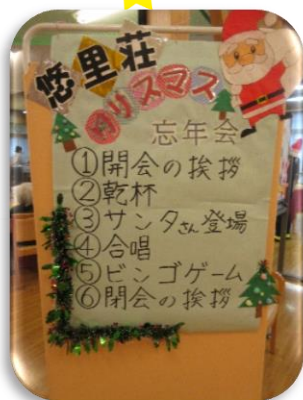 悠里荘
クリスマス
忘年会
①開会の挨拶
②乾杯
③サンタさん登場
④合唱
⑤ビンゴゲーム
⑥閉会の挨拶